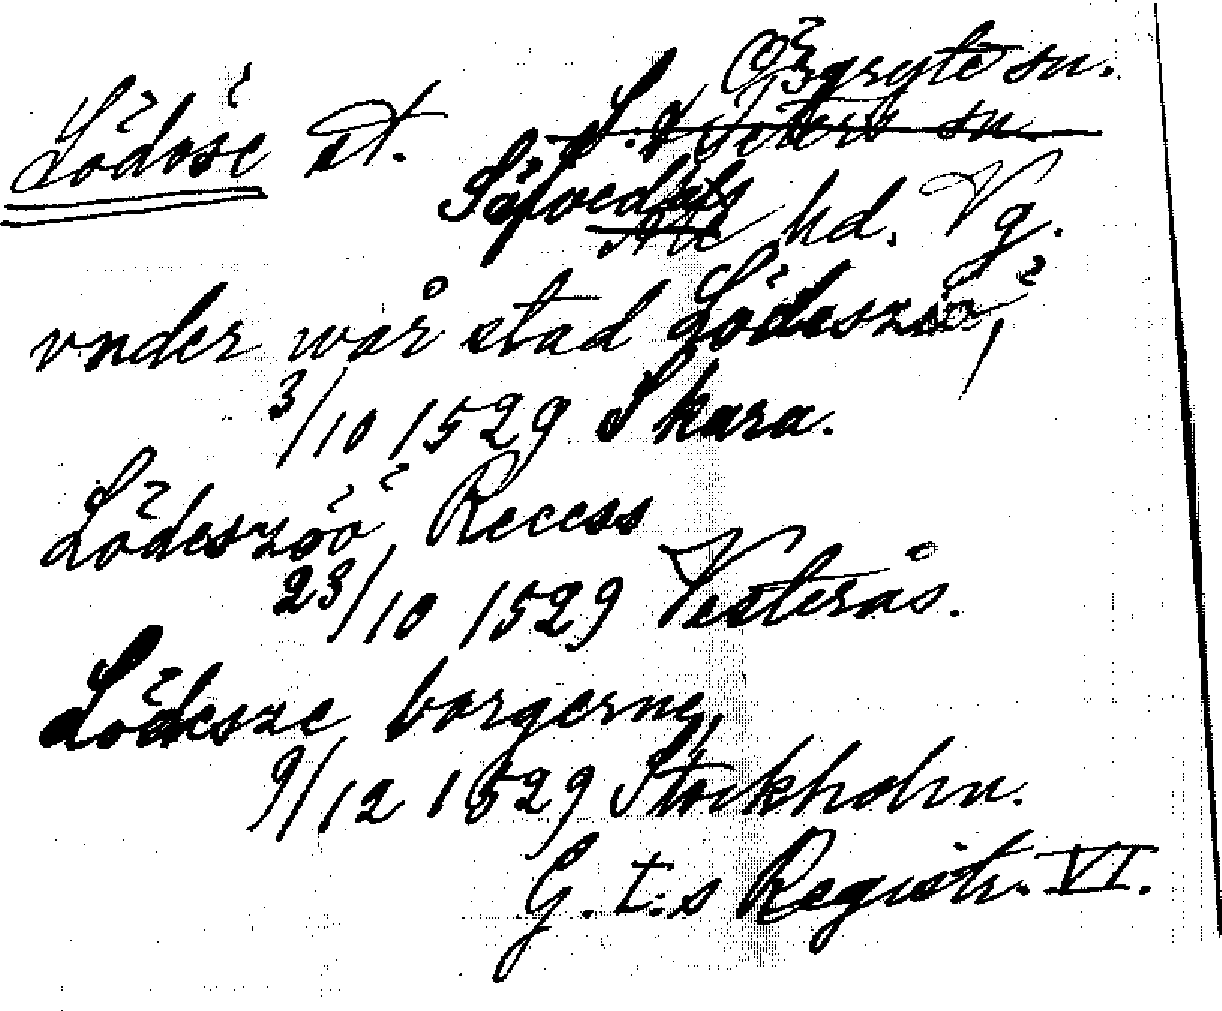 Lödöse st. Örgryte sn.
S:t Peters sn.
Säfvedals
Ale hd. Vg.
vnder wår stad Lödeszöö,
3/10 1529 Skara.
Lödeszöö, Recess
23/10 1529 Vesterås.
Lödesze borgerne,
9/12 1529 Stockholm.
G. I:s Registr. VI.